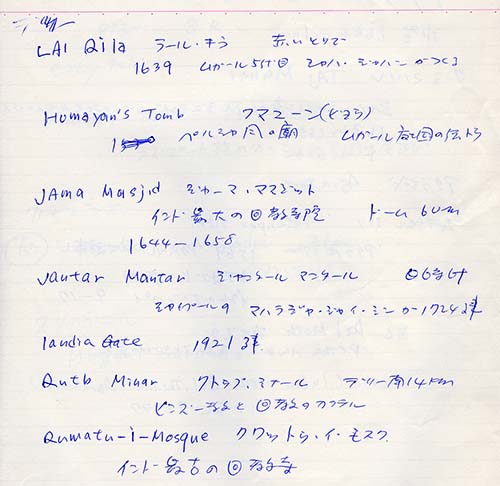 デリー
LAl Qila ラール・キラ 赤いとりで
1639 ムガール5代目 シャハ・ジャハーンがつくる
Humayan's Tomb フマユーン(どよう)
1 ペルシャ風の廟 ムガール帝国の
JAma Masjid ジャーマ・マスジット
インド最大の回教寺院 ドーム 60m
1644-1658
Jantar Mantar ジャンタール マンタール
ジャイプールのマハラジャ・ジャイ・シンが1724建
India Gate 1921建
Qutb Minar クトゥブ・ミナール デリー南14Km
ヒンズー教と回教のカクテル
Qumatu-i-Mosque クワットゥ・イ・モスク
インド最古の回教寺